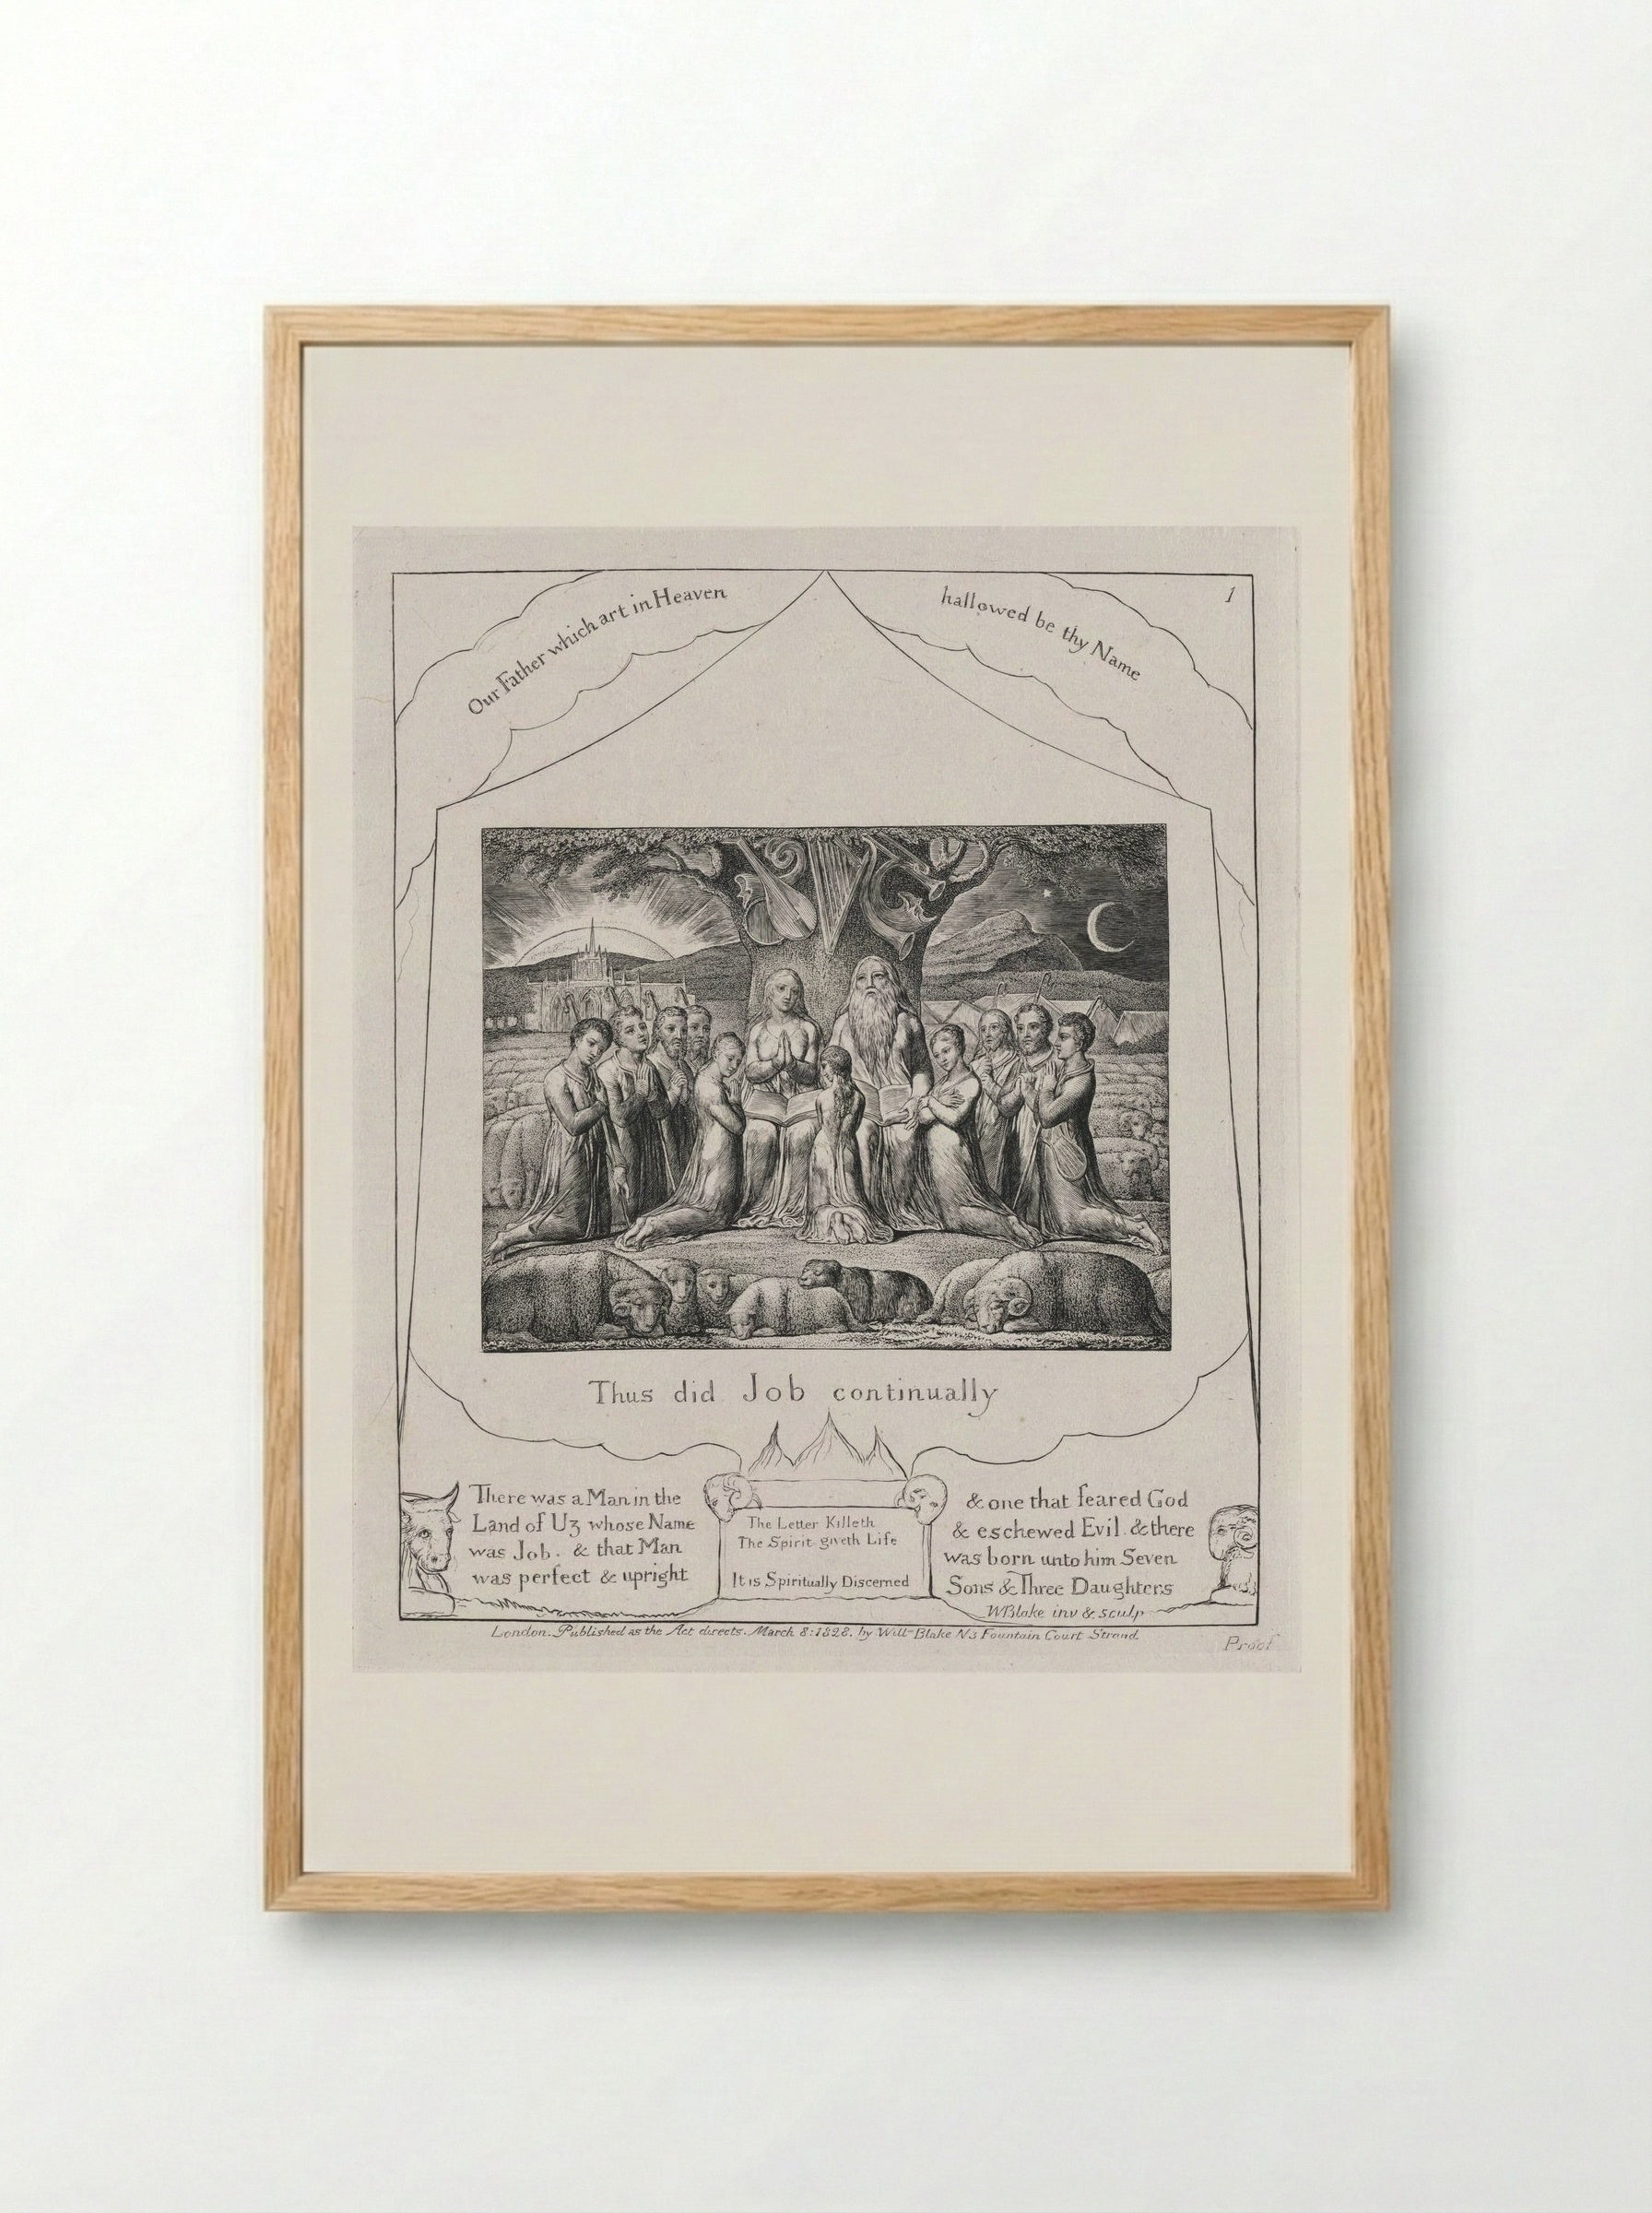 Our Father which art in Heaven
hallowed be thy Name
1
Thus did Job continually
There was a Man in the
Land of Uz whose Name
was Job. & that Man
was perfect & upright
The Letter Killeth
The Spirit giveth Life
It is Spiritually Discerned
& one that feared God
& eschewed Evil. & there
was born unto him Seven
Sons & Three Daughters
WBlake inv & sculp
London. Published as the Act directs. March 8: 1828. by Willm Blake N3 Fountain Court Strand
Proof